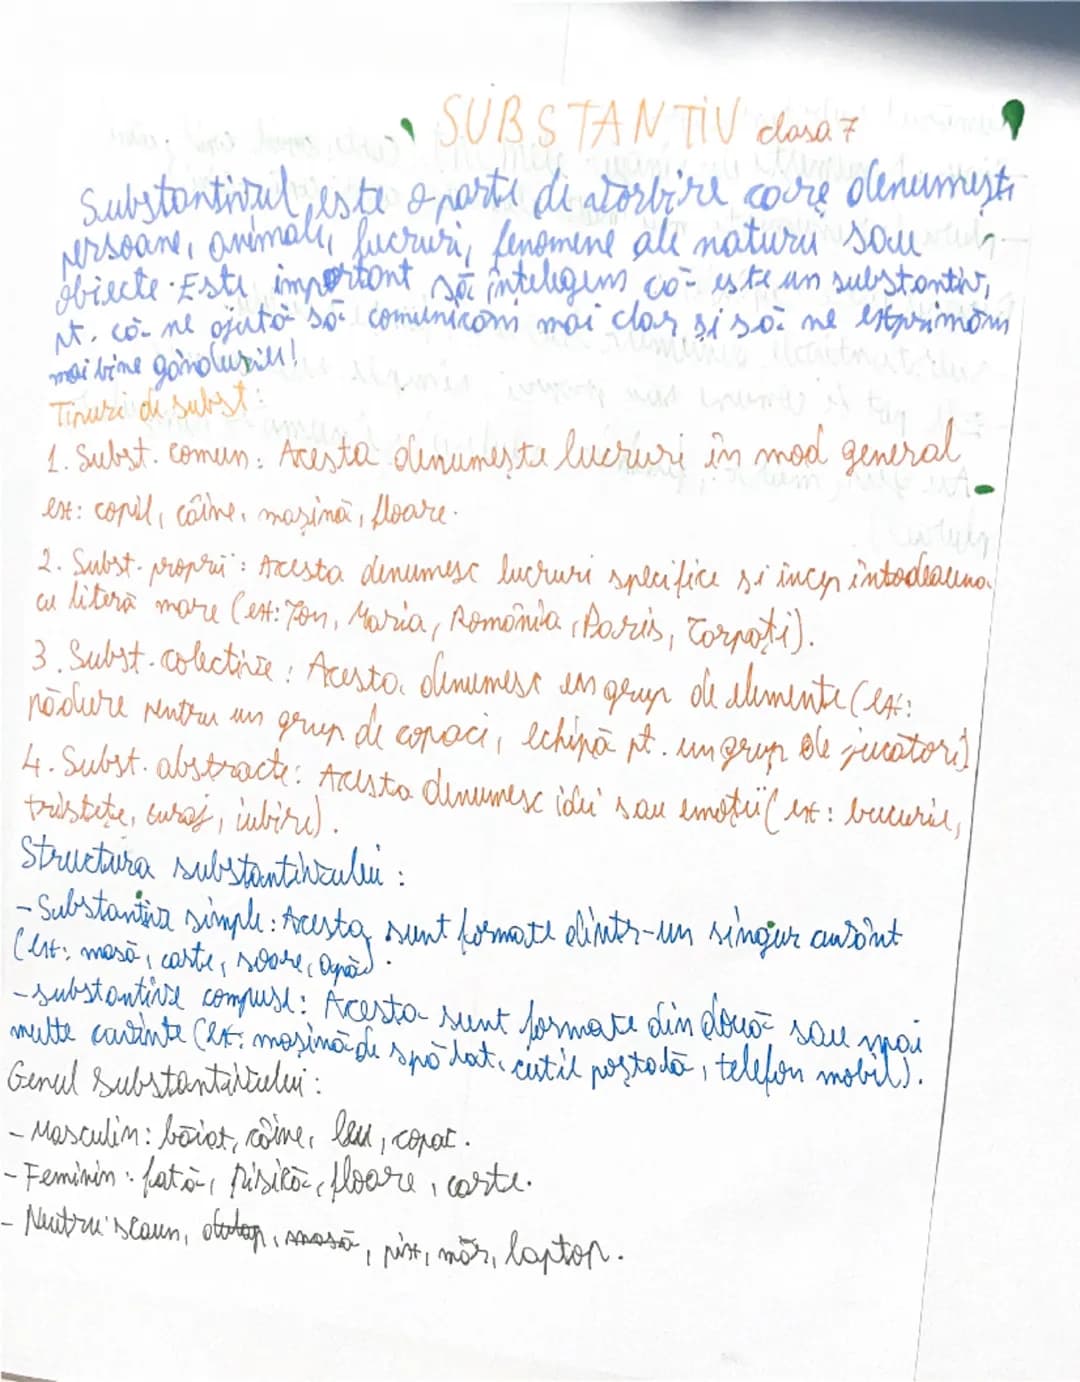 SUBSTANTIV clasa 7
Substantivul este o parte de vorbire care denumește
persoane, animale, lucruri, fenomene ale naturii sau
obiecte. Este important să înțelegem că este un substantiv,
pt. că ne ajută să comunicăm mai clar și să ne exprimăm
mai bine gândurile!
Tipuri de subst:
1. Subst. comun: Acesta denumește lucruri în mod general
ex: copil, câine, mașină, floare.
2. Subst. proprii: Acesta denumesc lucruri specifice și încep întodeauna
cu literă mare (ex: Ion, Maria, România, Paris, Carpați).
3. Subst. colective: Acesta denumesc un grup de elemente (ex:
pădure pentru un grup de copaci, echipă pt. un grup de jucători)
4. Subst. abstracte: Acesta denumesc idei sau emoții (ex: bucurie,
tristețe, curaj, iubire).
Structura substantivului:
- Substantive simple: Acesta sunt formate dintr-un singur cuvânt
(ex: masă, carte, soare, apă).
- substantive compuse: Acesta sunt formate din două sau mai
multe cuvinte (ex: mașină de spălat, cutie poștală, telefon mobil).
Genul substantivului:
- Masculin: băiat, câine, leu, copac.
- Feminin: fată, pisică, floare, carte.
- Neutru: scaun, masă, pix, măr, laptop.